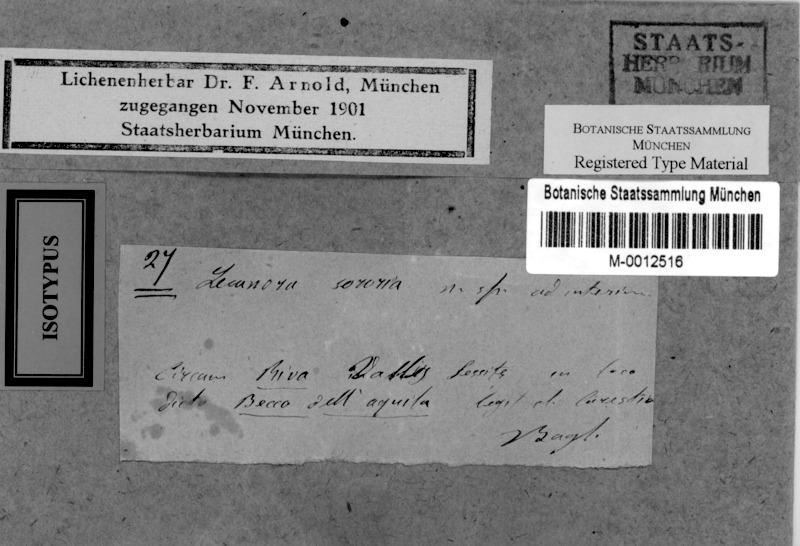 STAATS-
HERBARIUM
MÜNCHEN
Lichenenherbar Dr. F. Arnold, München
zugegangen November 1901
Staatsherbarium München.
BOTANISCHE STAATSSAMMLUNG
MÜNCHEN
Registered Type Material
Botanische Staatssammlung München
M-0012516
ISOTYPUS
27 Lecanora sororia n. sp. ad interim
Circum Riva Vallis Sessite in loco
dicto Becco dell'aquila legit cl. Carestia
Bagl.